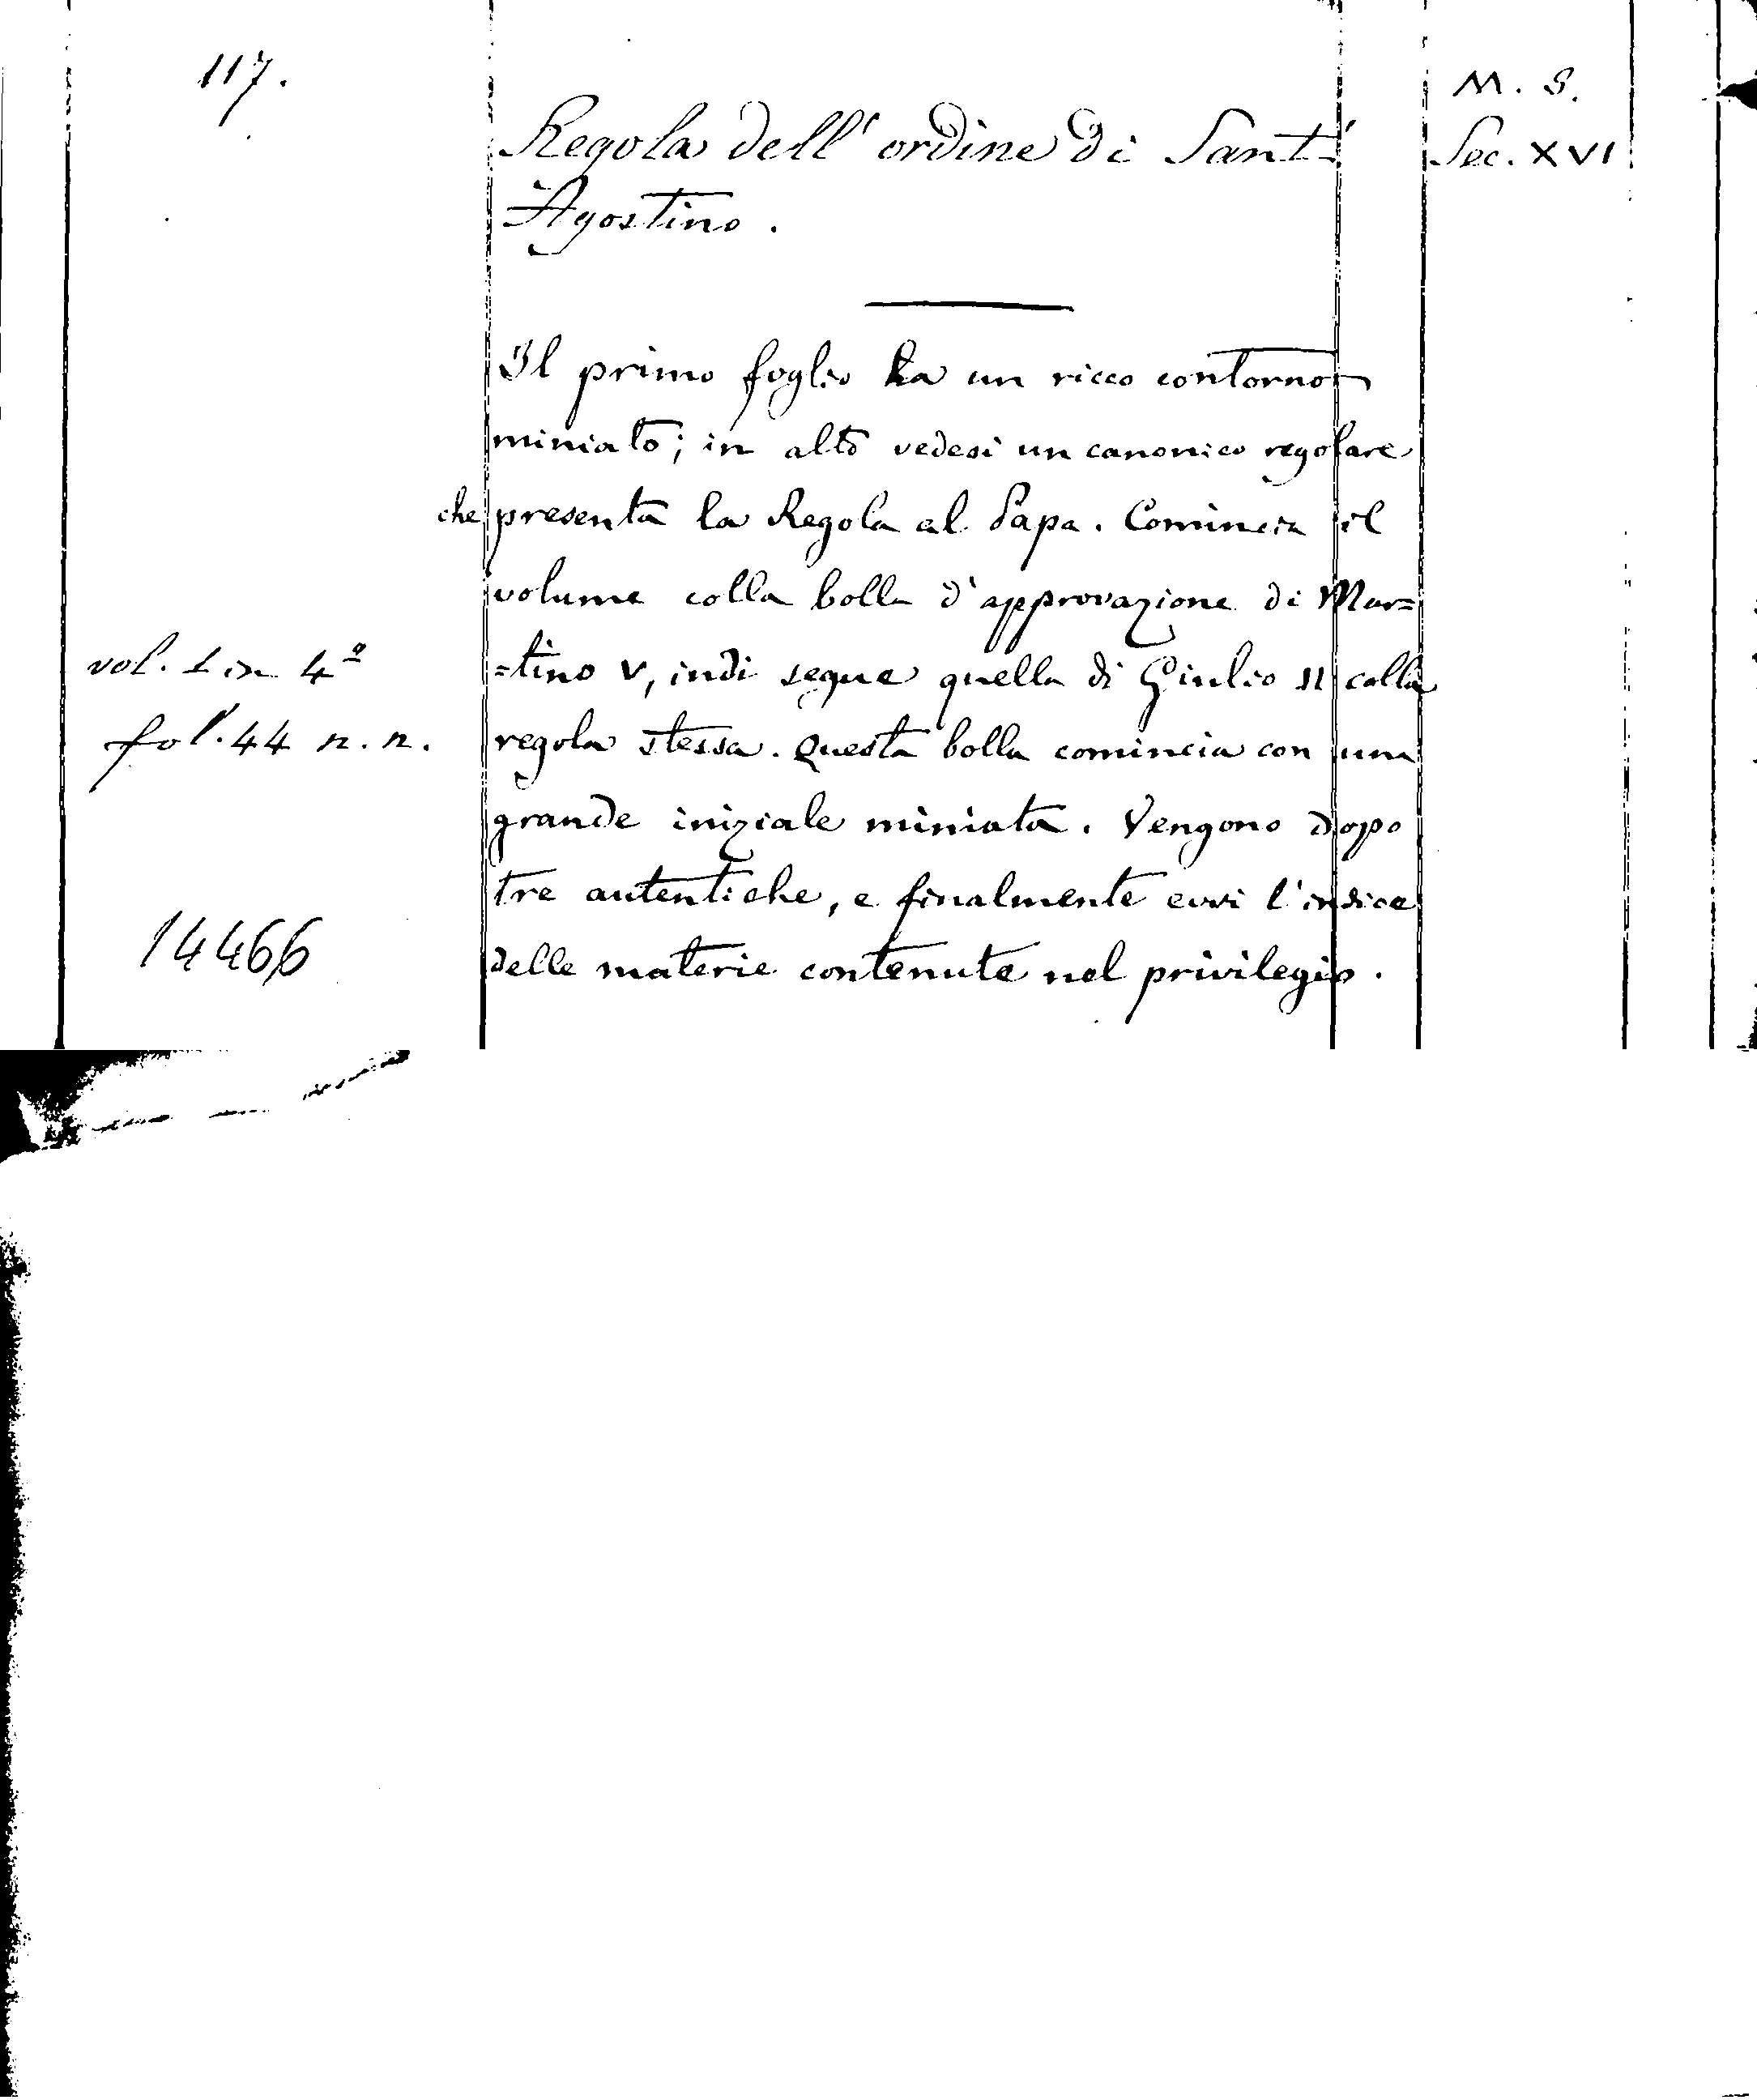 117.
M. S.
Regola dell' ordine di Sant'
Sec. XVI
Agostino.
Il primo foglio ha un ricco contorno
miniato; in alto vedesi un canonico regolare
che presenta la Regola al Papa. Comincia il
volume colla bolla d'approvazione di Mar=
=tino V, indi segue quella di Giulio II colla
vol. 1 in 4º
regola stessa. Questa bolla comincia con una
fol. 44 n. n.
grande iniziale miniata. Vengono dopo
tre autentiche, e finalmente evvi l'indice
delle materie contenute nel privilegio.
14466